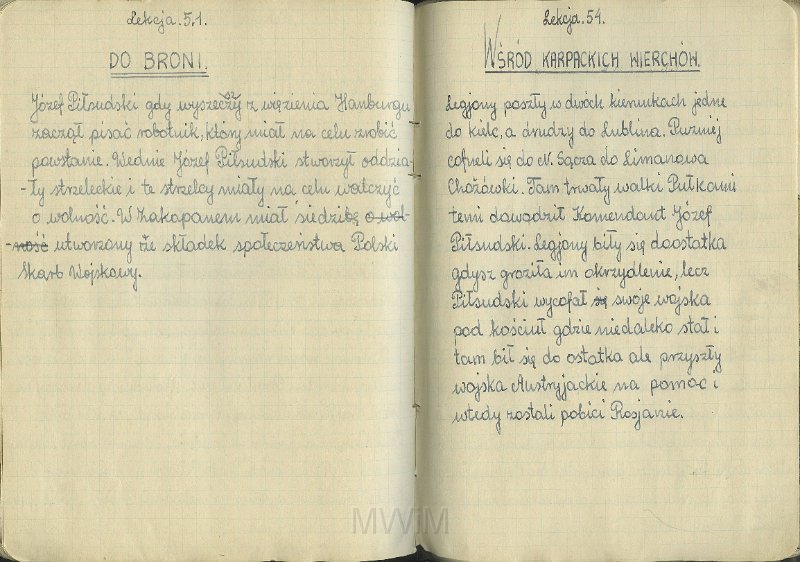 Lekcja. 51.
DO BRONI.
Józef Piłsudski gdy wyszeczły z więzienia Hanburgu
zaczął pisać robotnik, który miał na celu zrobić
powstanie. Wednie Józef Piłsudski stworzył oddzia-
-ły strzeleckie i te strzelcy miały na celu walczyć
o wolność. W Zakapanem miał siedzibę o wol-
-ność utworzony że składek społeczeństwa Polski
Skarb Wojskowy.
Lekcja. 54.
WŚRÓD KARPACKICH WIERCHÓW.
Legjony poszły w dwóch kierunkach jedne
do kielc, a drudzy do Lublina. Puzniej
cofneli się do N. Sącza do Limanowa
Chożówki. Tam trwały walki Pułkami
temi dawodził Komendant Józef
Piłsudski. Legjony biły się doostatka
gdysz groziła im okrzydlenie, lecz
Piłsudski wycofał się swoje wojska
pod kościuł gdzie niedaleko stał i
tam bił się do ostatka ale przyszły
wojska Austryjackie na pomoc i
wtedy zostali pobici Rosjanie.
MWiM